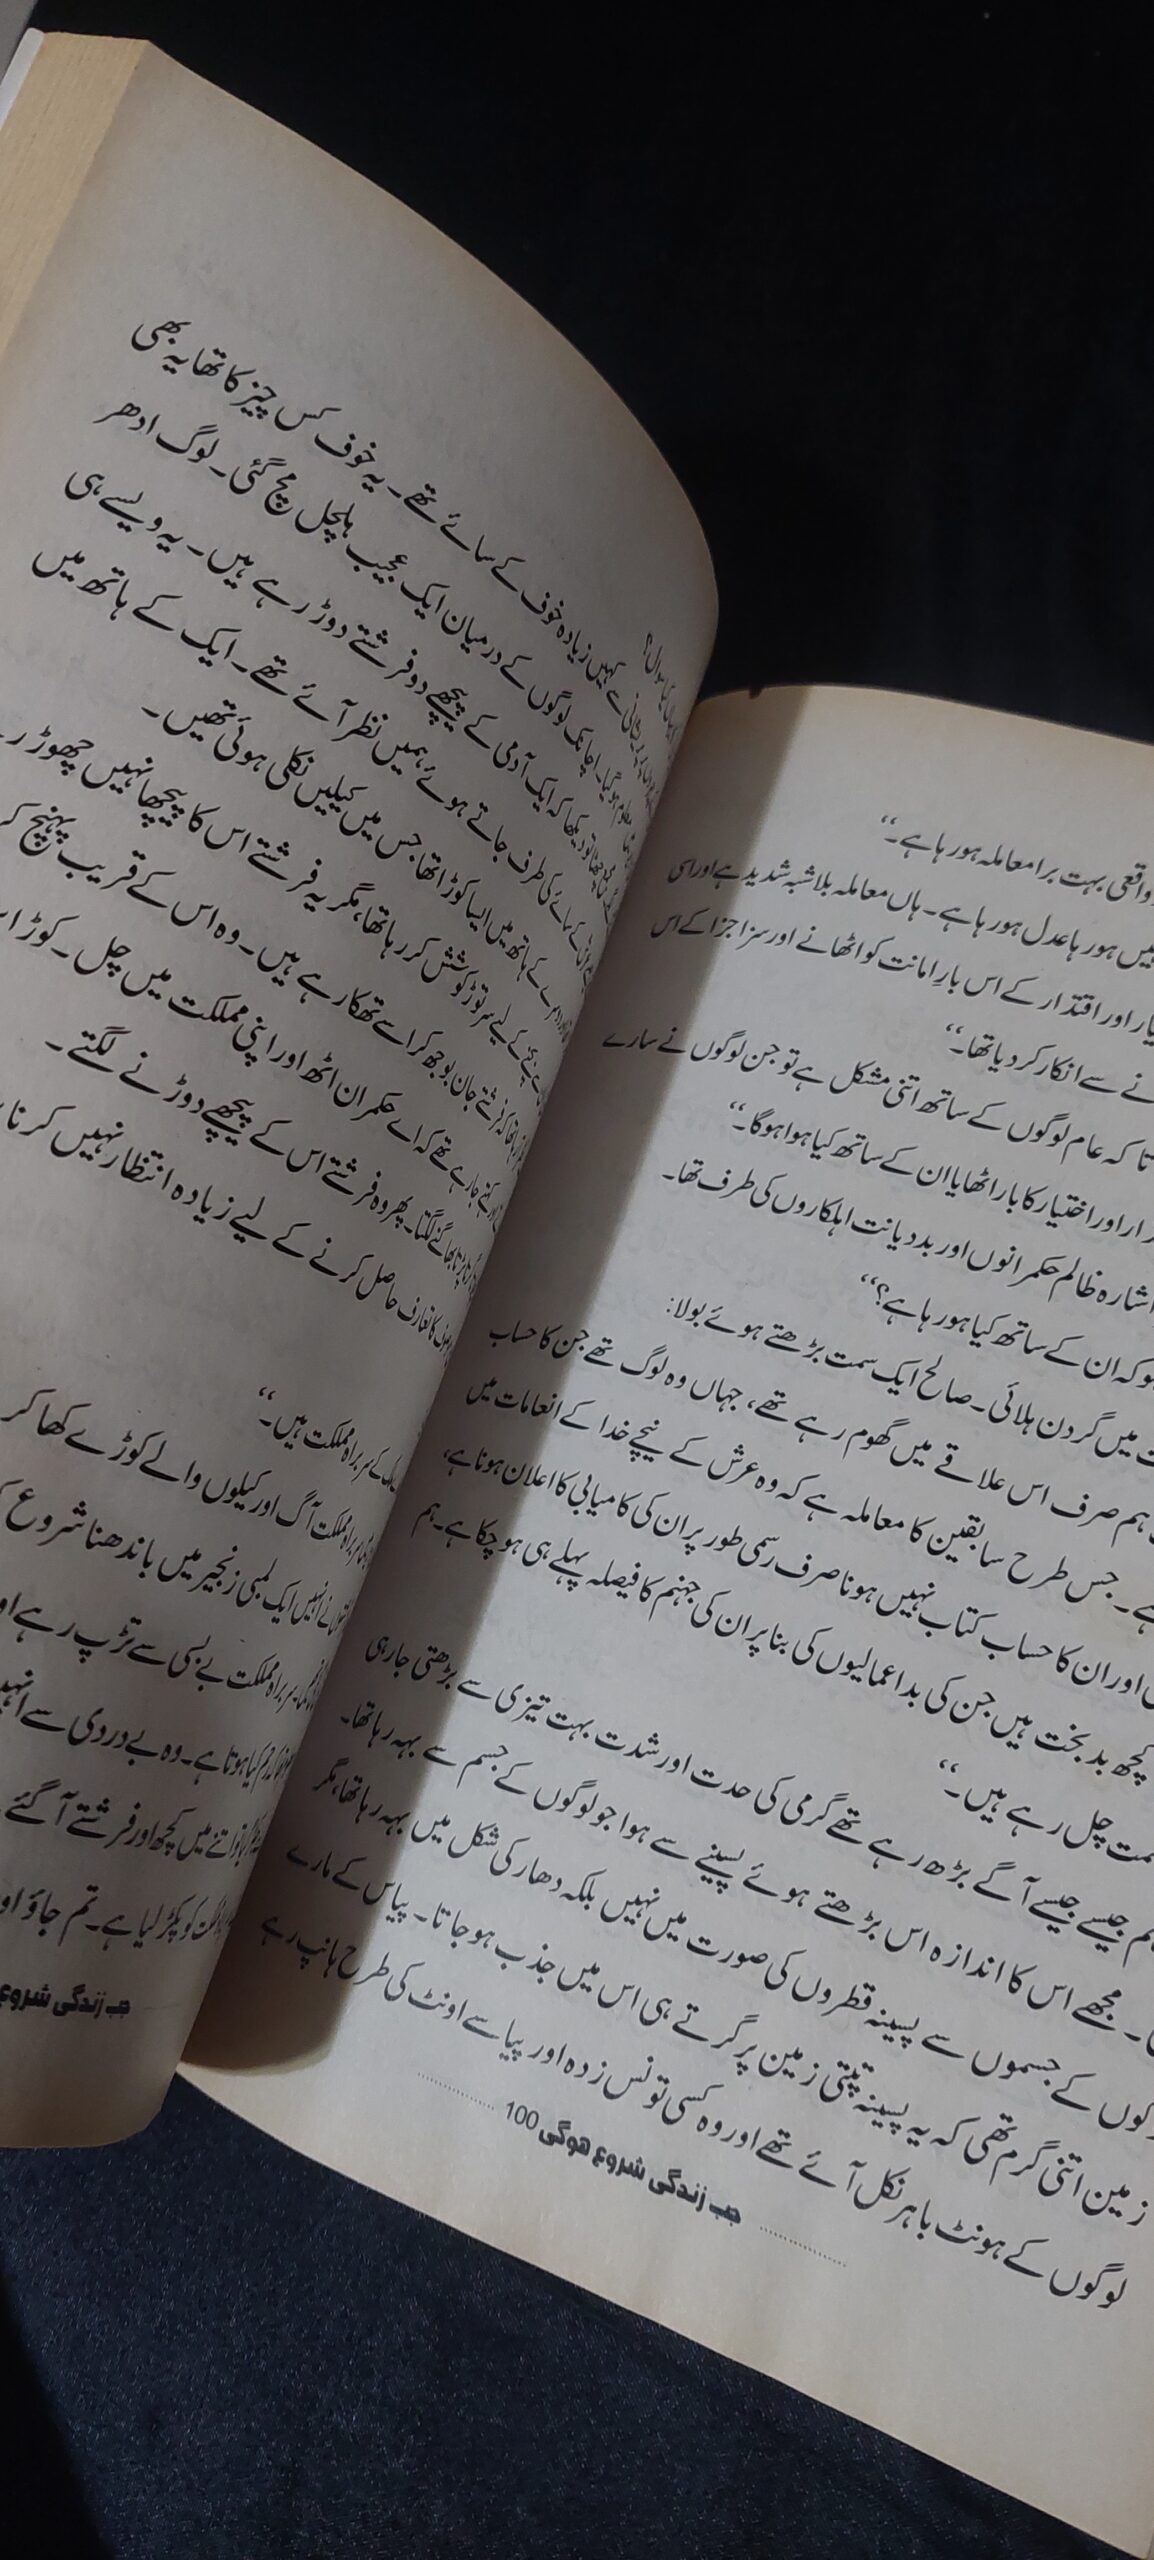 واقعی بہت برا معاملہ ہورہا ہے۔‘‘
ہیں ہورہا عدل ہورہا ہے۔ ہاں معاملہ بلاشبہ شدید ہے اور اسی
اور اقتدار کے اس بارِ امانت کو اٹھانے اور سزا جزا کے اس
نے سے انکار کردیا تھا۔‘‘
کہ عام لوگوں کے ساتھ اتنی مشکل ہے تو جن لوگوں نے سارے
اور اختیار کا بار اٹھایا ان کے ساتھ کیا ہوا ہوگا۔‘‘
اشارہ ظالم حکمرانوں اور بددیانت اہلکاروں کی طرف تھا۔
کہ ان کے ساتھ کیا ہورہا ہے؟‘‘
میں گردن ہلائی۔ صالح ایک سمت بڑھتے ہوئے بولا:
ہم صرف اس علاقے میں گھوم رہے تھے، جہاں وہ لوگ تھے جن کا حساب
ہے۔ جس طرح سابقین کا معاملہ ہے کہ وہ عرش کے نیچے خدا کے انعامات میں
اور ان کا حساب کتاب نہیں ہونا صرف رسمی طور پر ان کی کامیابی کا اعلان ہونا ہے،
کچھ بدبخت ہیں جن کی بداعمالیوں کی بنا پر ان کی جہنم کا فیصلہ پہلے ہی ہوچکا ہے۔ ہم
چل رہے ہیں۔‘‘
جیسے جیسے آگے بڑھ رہے تھے گرمی کی حدت اور شدت بہت تیزی سے بڑھتی جارہی
مجھے اس کا اندازہ اس بڑھتے ہوئے پسینے سے ہوا جو لوگوں کے جسم سے بہہ رہا تھا۔
کے جسموں سے پسینہ قطروں کی صورت میں نہیں بلکہ دھار کی شکل میں بہہ رہا تھا، مگر
زمین اتنی گرم تھی کہ یہ پسینہ تپتی زمین پر گرتے ہی اس میں جذب ہوجاتا۔ پیاس کے مارے
لوگوں کے ہونٹ باہر نکل آئے تھے اور وہ کسی تونس زدہ اور پیاسے اونٹ کی طرح ہانپ رہے
جب زندگی شروع ہوگی 100
سے کہیں زیادہ خوف کے سائے تھے۔ یہ خوف کس چیز کا تھا یہ بھی
معلوم ہوگیا۔ اچانک لوگوں کے درمیان ایک عجیب ہلچل مچ گئی۔ لوگ ادھر
تو دیکھا کہ ایک آدمی کے پیچھے دو فرشتے دوڑ رہے ہیں۔ یہ ویسے ہی
کے سائے کی طرف جاتے ہوئے ہمیں نظر آئے تھے۔ ایک کے ہاتھ میں
کے ہاتھ میں ایسا کوڑا تھا جس میں کیلیں نکلی ہوئی تھیں۔
کے لیے سرتوڑ کوشش کررہا تھا، مگر یہ فرشتے اس کا پیچھا نہیں چھوڑ
فرشتے جان بوجھ کر اسے تھکا رہے ہیں۔ وہ اس کے قریب پہنچ
جارہے تھے کہ اے حکمران اٹھ اور اپنی مملکت میں چل۔ کوڑا
بھاگنے لگتا۔ پھر وہ فرشتے اس کے پیچھے دوڑنے لگتے۔
کا تعارف حاصل کرنے کے لیے زیادہ انتظار نہیں کرنا
کے سربراہ مملکت ہیں۔‘‘
سربراہ مملکت آگ اور کیلوں والے کوڑے کھا کر
نے انہیں ایک لمبی زنجیر میں باندھنا شروع
سربراہ مملکت بے بسی سے تڑپ رہے
کیا ہوتا ہے۔ وہ بے دردی سے انہیں
اتنے میں کچھ اور فرشتے آگئے
کو پکڑ لیا ہے۔ تم جاؤ
جب زندگی شروع